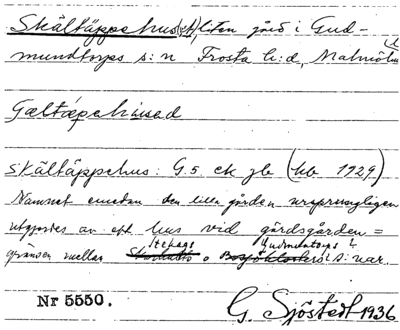 Skältäppehus(et), liten gård i Gud-
mundtorps s:n Frosta h:d, Malmöhus l.
Gæltæpehused
Skältäppehus: G.5 ek jb (hb 1929)
Namnet emedan den lilla gården ursprungligen
utgjordes av ett hus vid gärdsgården =
gränsen mellan Stehags o Gudmuntorps s:nar.
Nr 5550.
G. Sjöstedt 1936